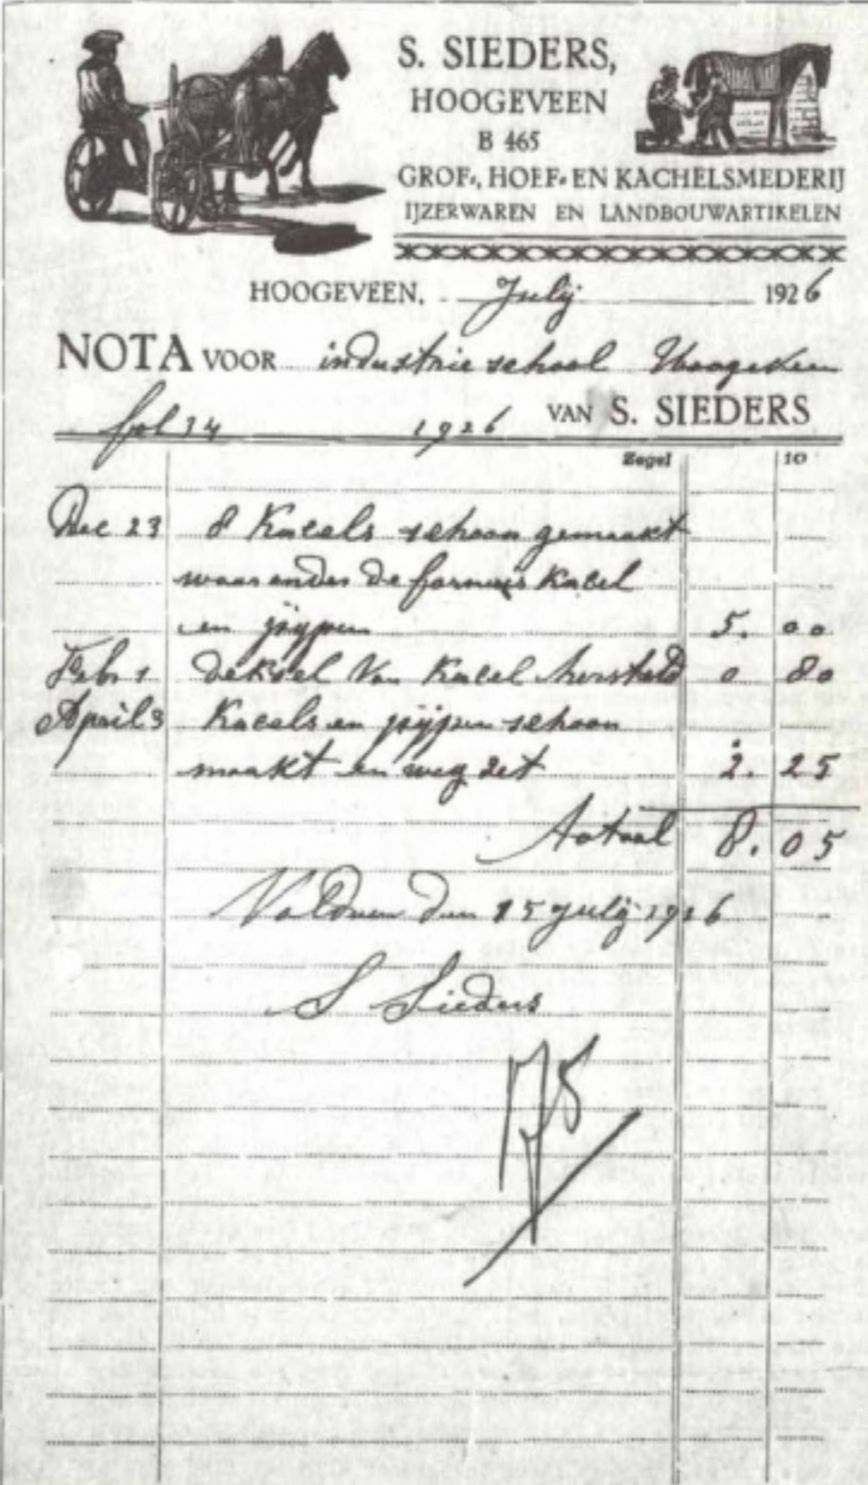 S. SIEDERS,
HOOGEVEEN
B 465
GROF-, HOEF- EN KACHELSMEDERIJ
IJZERWAREN EN LANDBOUWARTIKELEN
HOOGEVEEN, Julij 1926
NOTA VOOR industrie school Hoogeveen
fol 34 1926 VAN S. SIEDERS
Zegel 10
Dec 23 8 Kacels schoon gemaakt
waar onder de fornuis Kacel
en pijpen 5. 00
Febr 1 deksel Van Kacel hersteld 0 80
April 3 Kacels en pijpen schoon
maakt en weg zet 2. 25
Totaal 8. 05
Voldaan den 15 Julij 1926
S Sieders